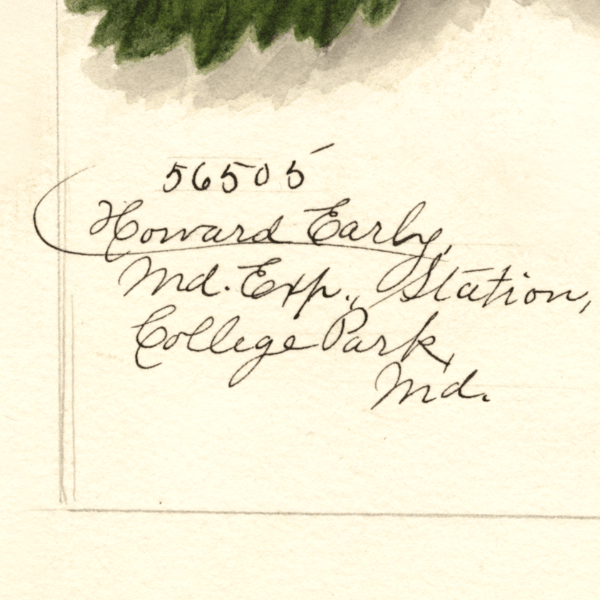 56505
Howard Early,
Md. Exp., Station,
College Park,
Md.